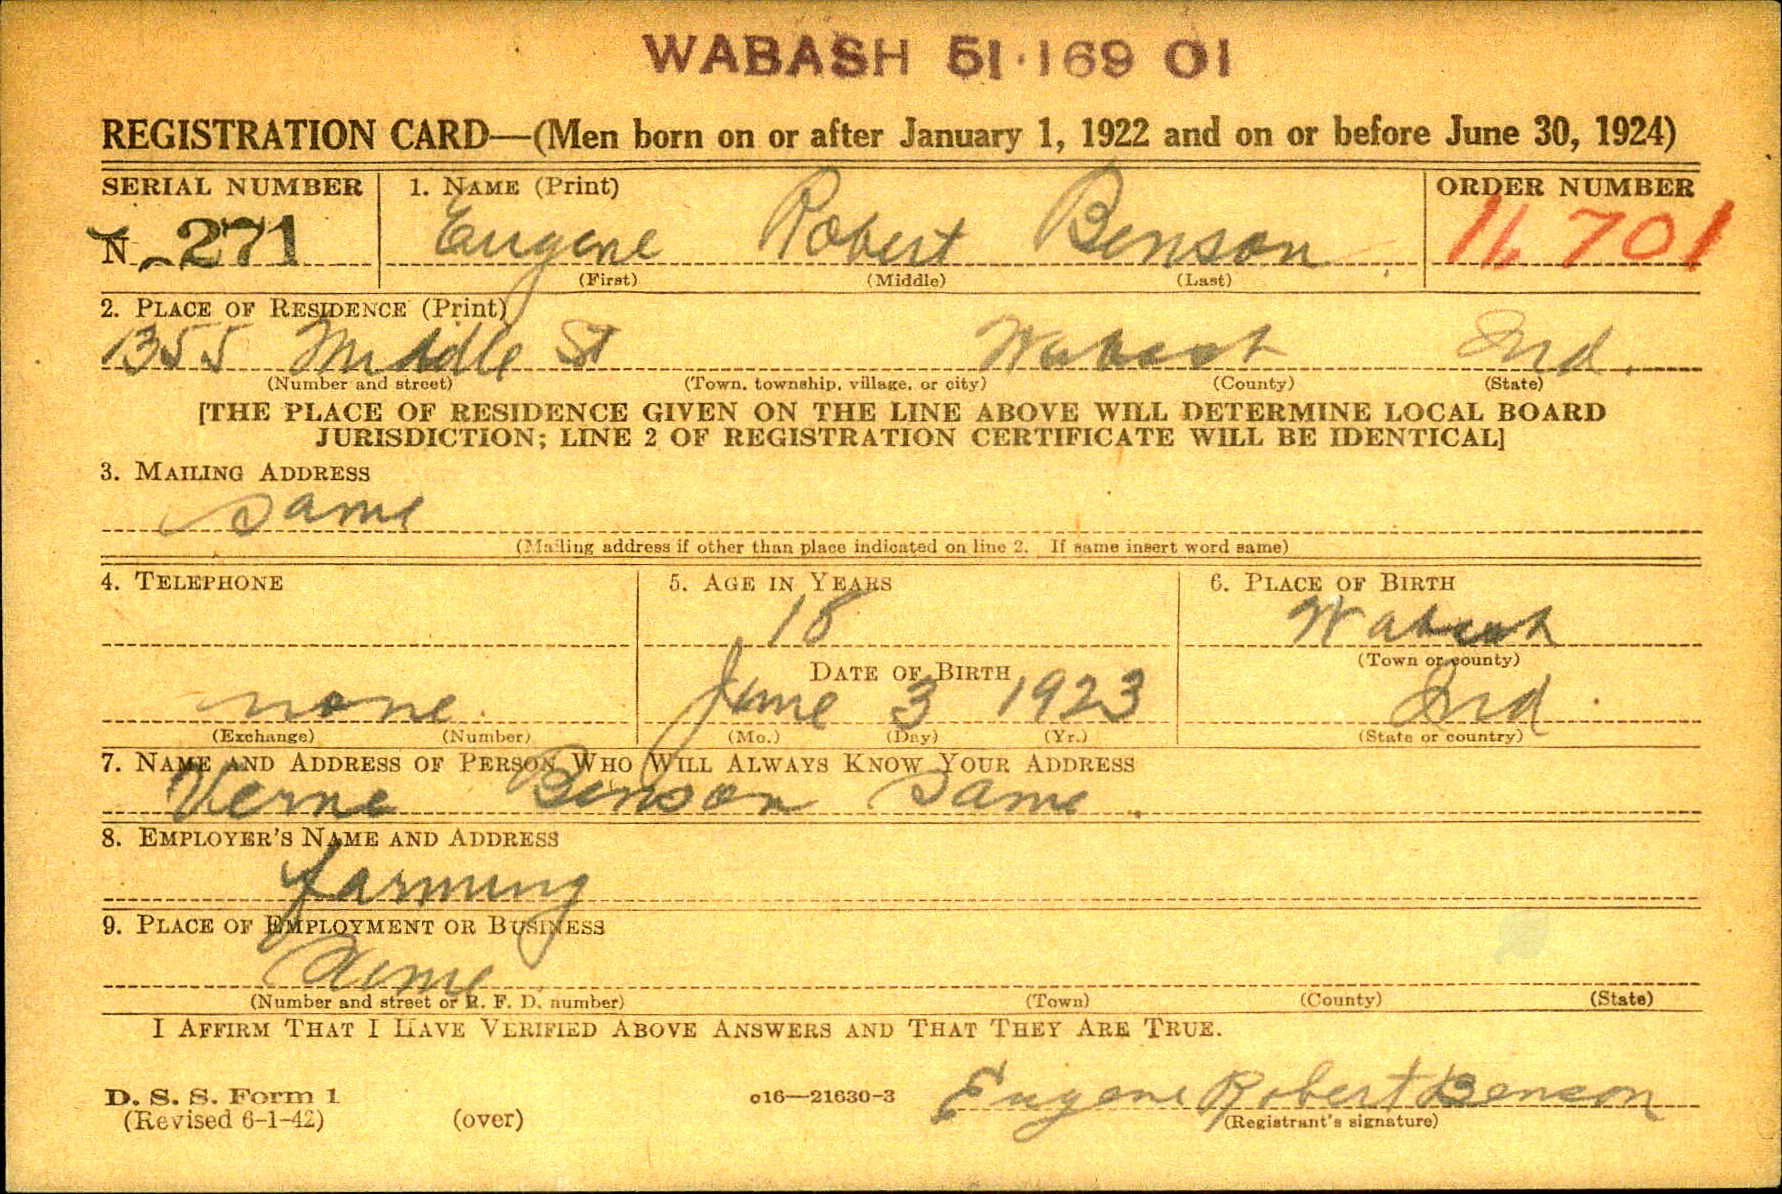 WABASH 51·169 01
REGISTRATION CARD—(Men born on or after January 1, 1922 and on or before June 30, 1924)
SERIAL NUMBER 1. NAME (Print) ORDER NUMBER
N 271 Eugene Robert Benson 11701
(First) (Middle) (Last)
2. PLACE OF RESIDENCE (Print)
1355 Middle St Wabash Ind.
(Number and street) (Town, township, village, or city) (County) (State)
[THE PLACE OF RESIDENCE GIVEN ON THE LINE ABOVE WILL DETERMINE LOCAL BOARD
JURISDICTION; LINE 2 OF REGISTRATION CERTIFICATE WILL BE IDENTICAL]
3. MAILING ADDRESS
Same
(Mailing address if other than place indicated on line 2. If same insert word same)
4. TELEPHONE 5. AGE IN YEARS 6. PLACE OF BIRTH
18 Wabash
DATE OF BIRTH (Town or county)
none. June 3 1923 Ind.
(Exchange) (Number) (Mo.) (Day) (Yr.) (State or country)
7. NAME AND ADDRESS OF PERSON WHO WILL ALWAYS KNOW YOUR ADDRESS
Verne Benson Same.
8. EMPLOYER'S NAME AND ADDRESS
farming
9. PLACE OF EMPLOYMENT OR BUSINESS
Home
(Number and street or R. F. D. number) (Town) (County) (State)
I AFFIRM THAT I HAVE VERIFIED ABOVE ANSWERS AND THAT THEY ARE TRUE.
D. S. S. Form 1 c16—21630-3 Eugene Robert Benson
(Revised 6-1-42) (over) (Registrant's signature)